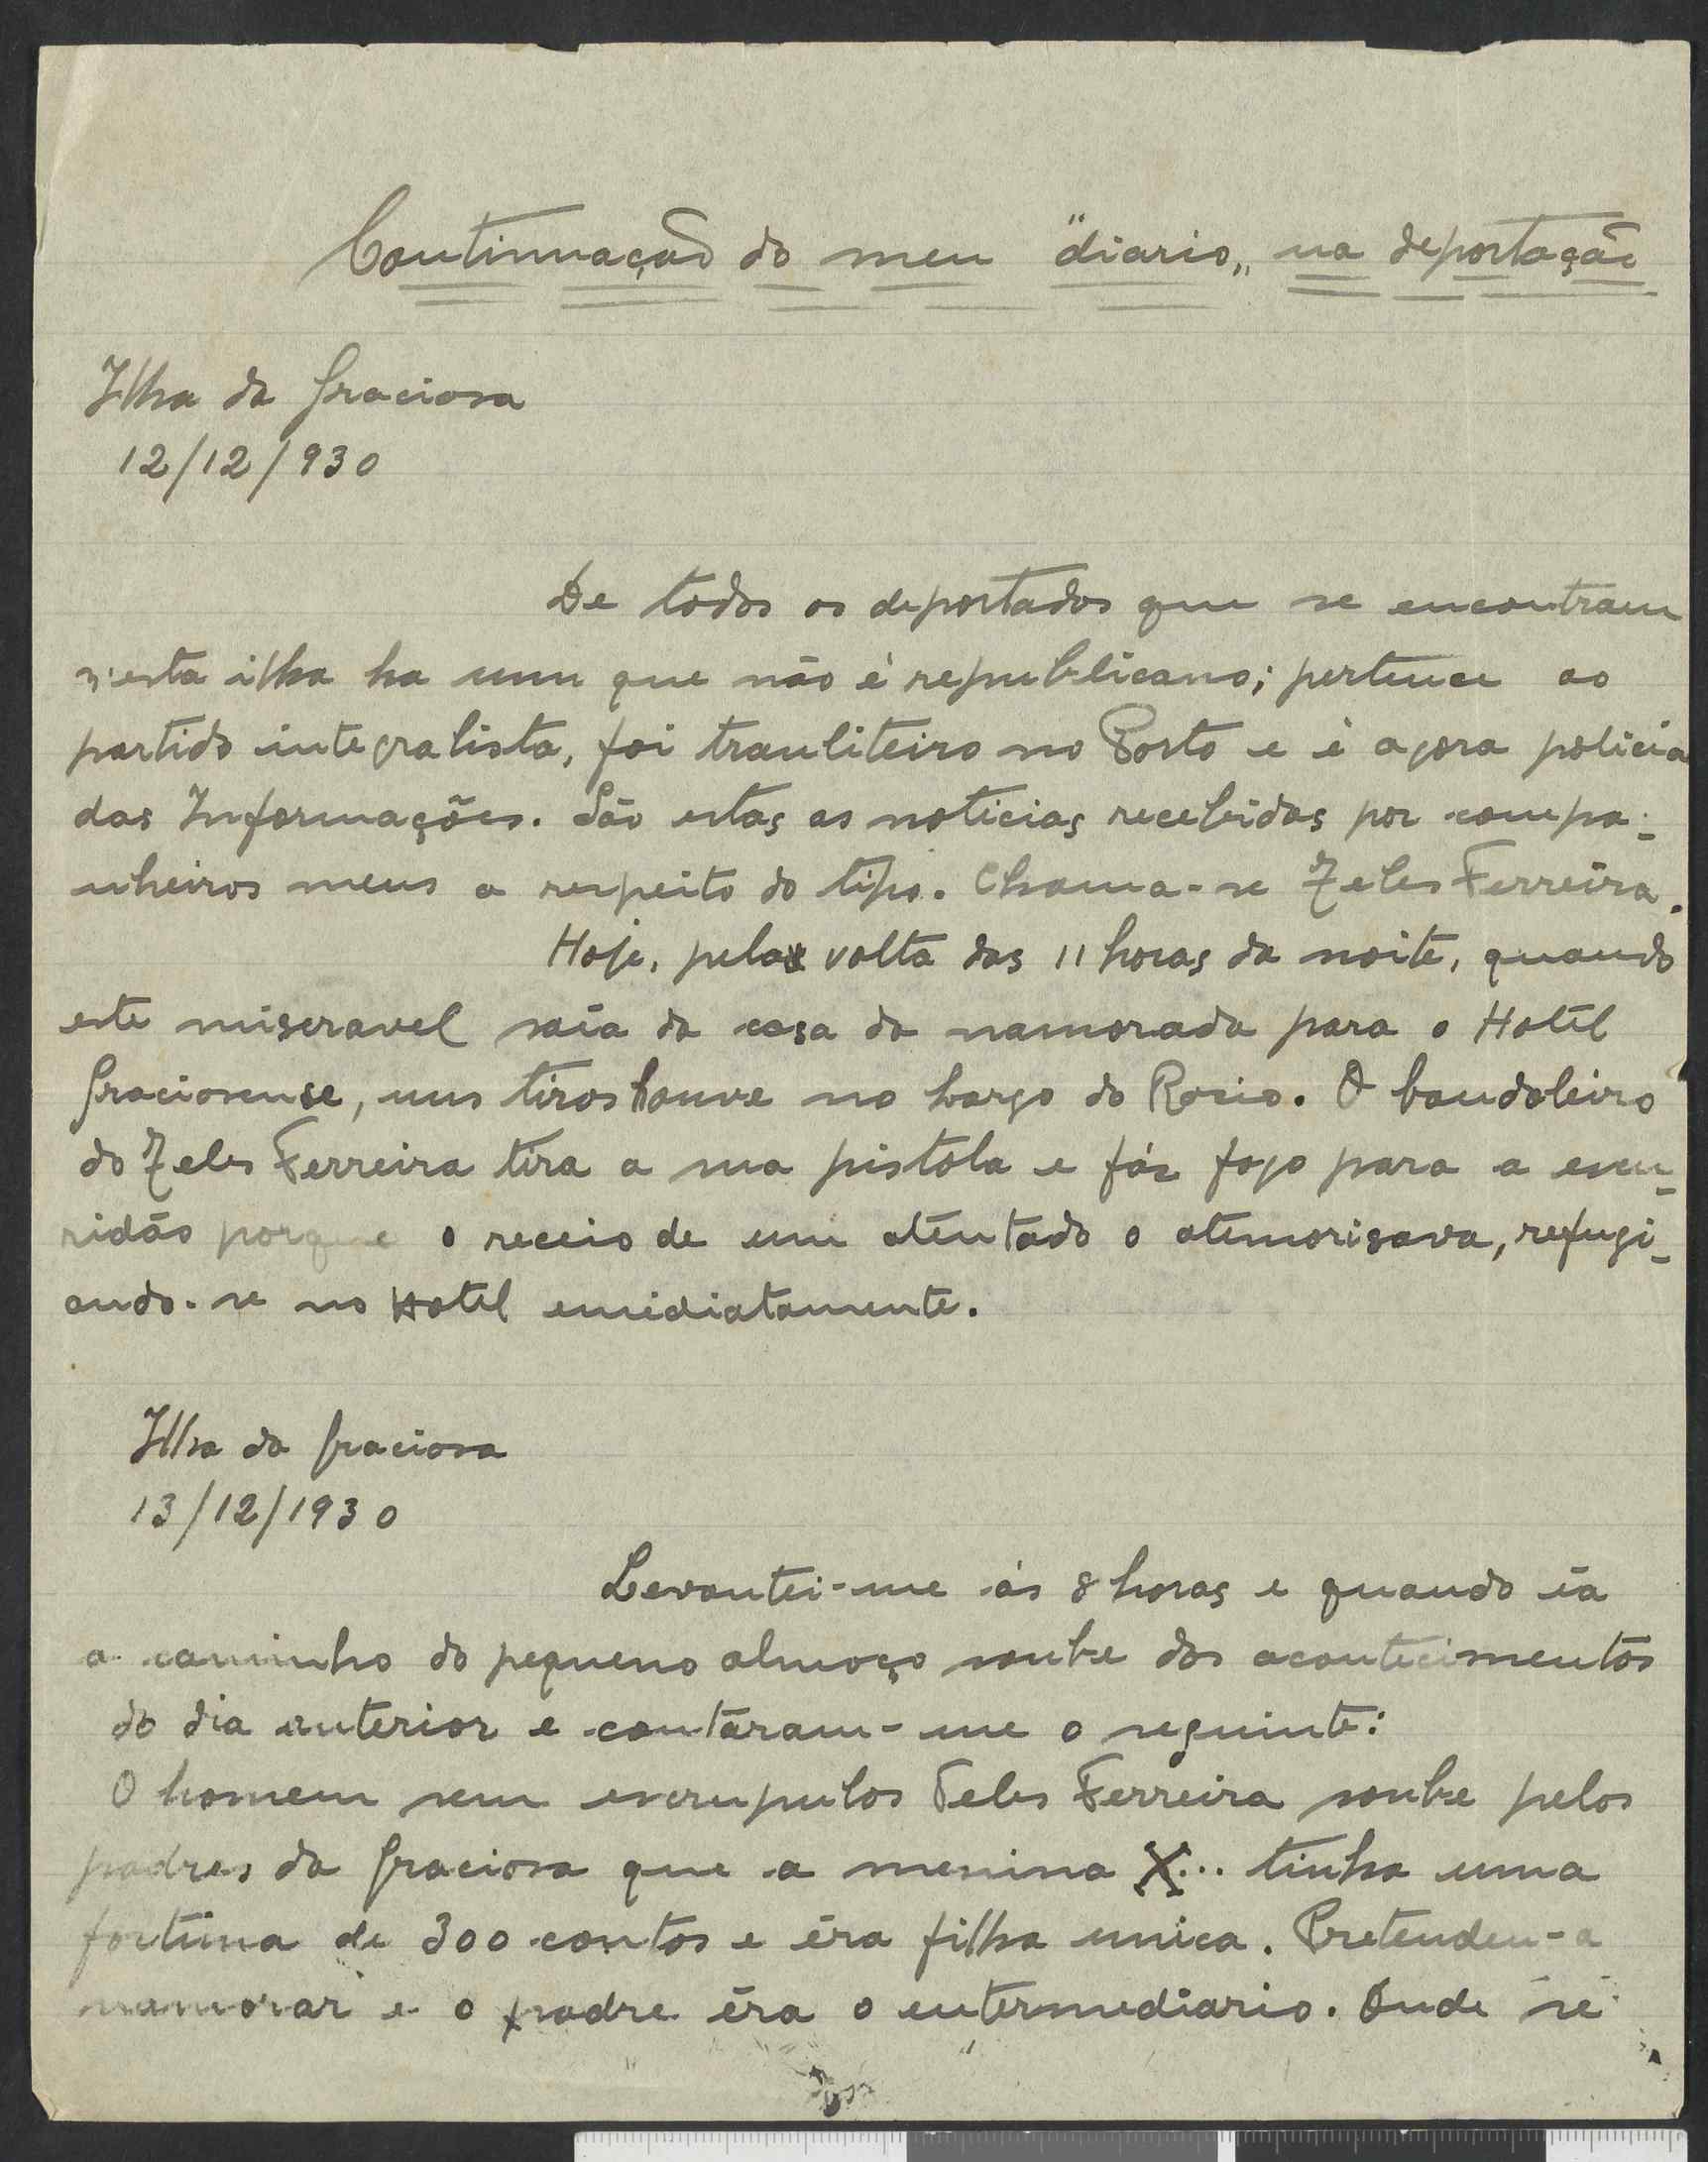 Continuação do meu "diario„ na deportação
Ilha da Graciosa
12/12/930
De todos os deportados que se encontram
n'esta ilha ha um que não é republicano; pertence ao
partido integralista, foi trauliteiro no Porto e é agora policia
das Informações. São estas as noticias recebidas por compa-
nheiros meus a respeito do tipo. Chama-se Teles Ferreira.
Hoje, pela volta das 11 horas da noite, quando
este miseravel saía da casa da namorada para o Hotel
Graciosense, uns tiros houve no Largo do Rocio. O bandoleiro
do Teles Ferreira tira a sua pistola e fáz fogo para a escu-
ridão porque o receio de um atentado o atemorisava, refugi-
ando-se no Hotel emidiatamente.
Ilha da Graciosa
13/12/1930
Levantei-me ás 8 horas e quando ía
a caminho do pequeno almoço soube dos acontecimentos
do dia anterior e contáram-me o seguinte:
O homem sem escrupulos Teles Ferreira soube pelos
padres da Graciosa que a menina X... tinha uma
fortuna de 300 contos e éra filha unica. Pretendeu-a
namorar e o padre éra o entermediario. Onde se